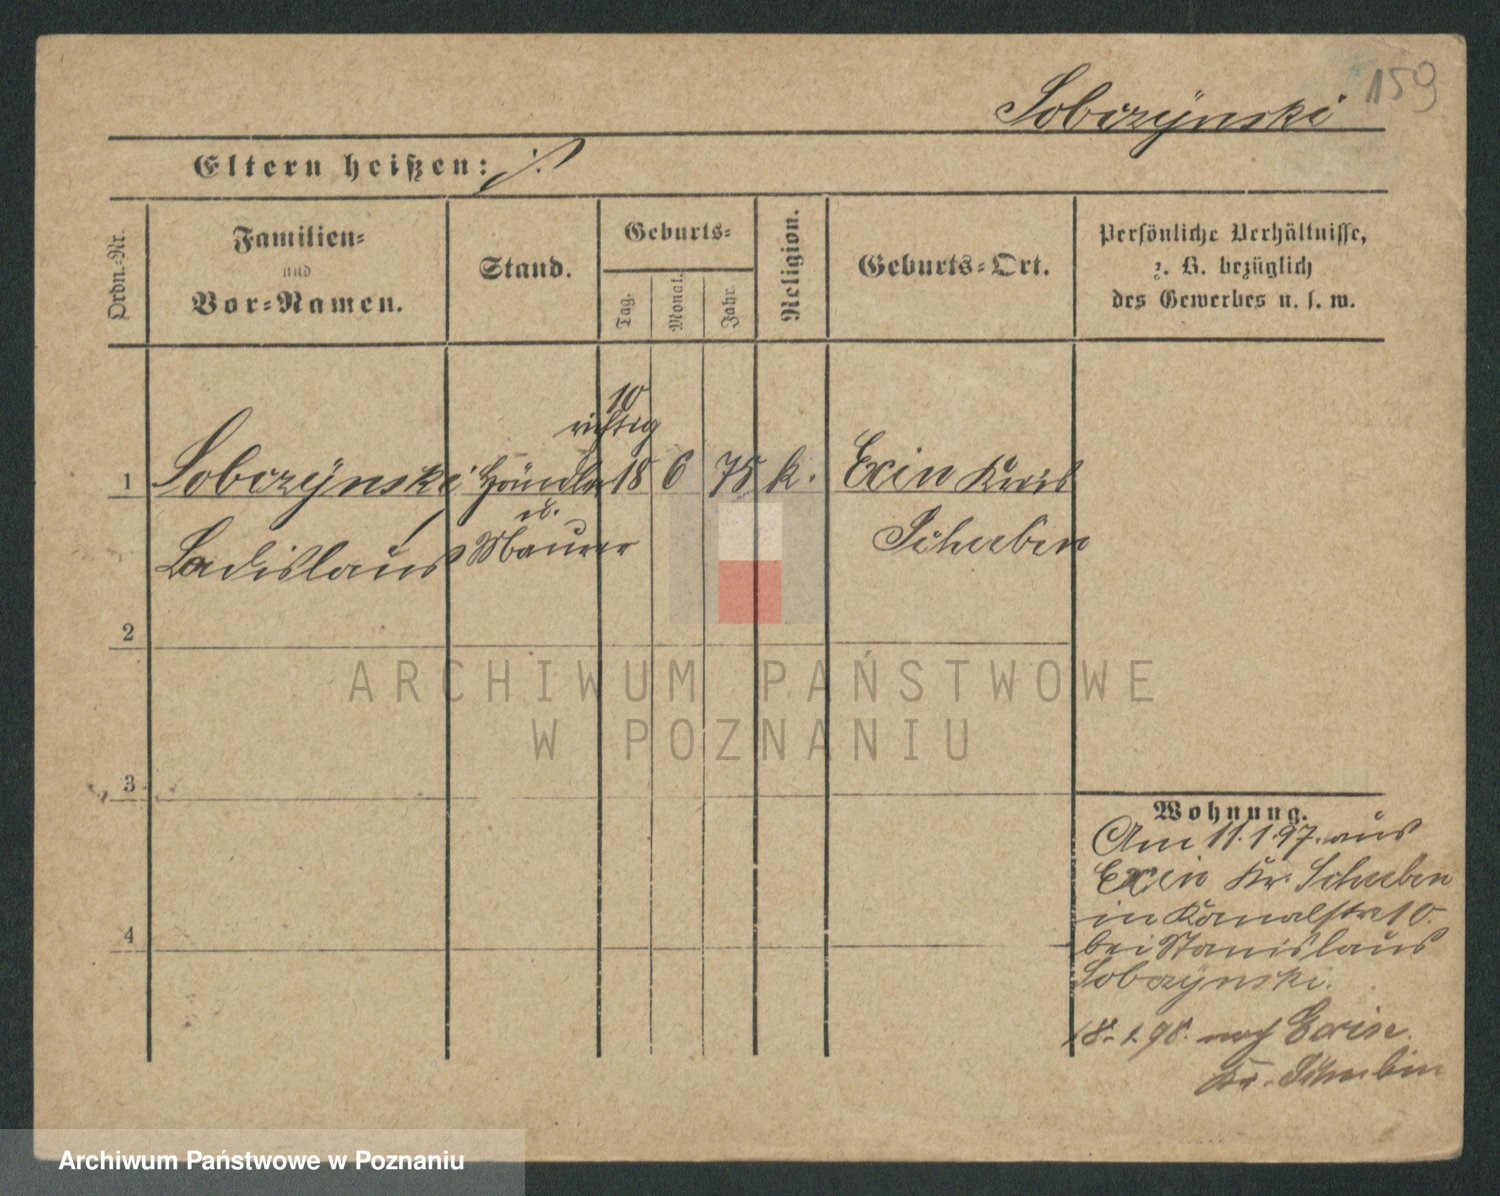 159
Sobczÿnski
Eltern heißen: ./.
Ordn.-Nr.
Familien-
und
Vor-Namen.
Stand.
Geburts-
Tag.
Monat.
Jahr.
Religion.
Geburts-Ort.
Persönliche Verhältnisse,
z. B. bezüglich
des Gewerbes u. s. w.
10
richtig
1 Sobczÿnski Händler 18 6 75 k. Exin Kreis
u.
Ladislaus Maurer Schubin
2
3
4
Wohnung.
Am 11.1.97. aus
Exin Kr. Schubin
in Kanalstr 10.
bei Stanislaus
Sobczÿnski.
18.1.98. nach Exin
Kr. Schubin
ARCHIWUM PAŃSTWOWE
W POZNANIU
Archiwum Państwowe w Poznaniu